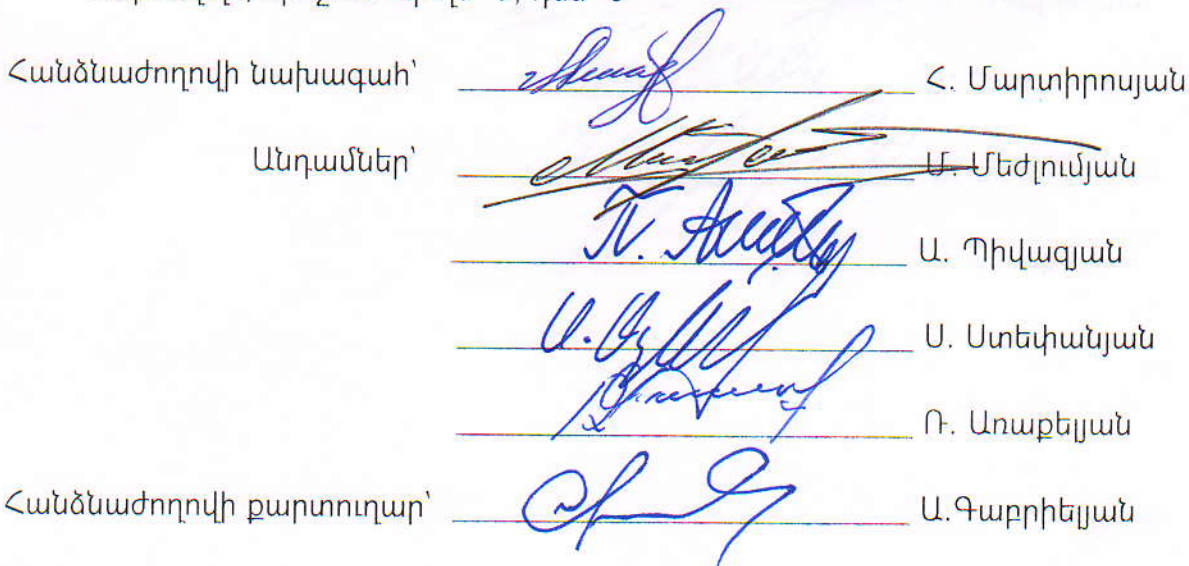 Հանձնաժողովի նախագահ՝ Հ. Մարտիրոսյան
Անդամներ՝ Մ. Մեժլումյան
Ա. Պիվազյան
Ս. Ստեփանյան
Ռ. Առաքելյան
Հանձնաժողովի քարտուղար՝ Ա.Գաբրիելյան